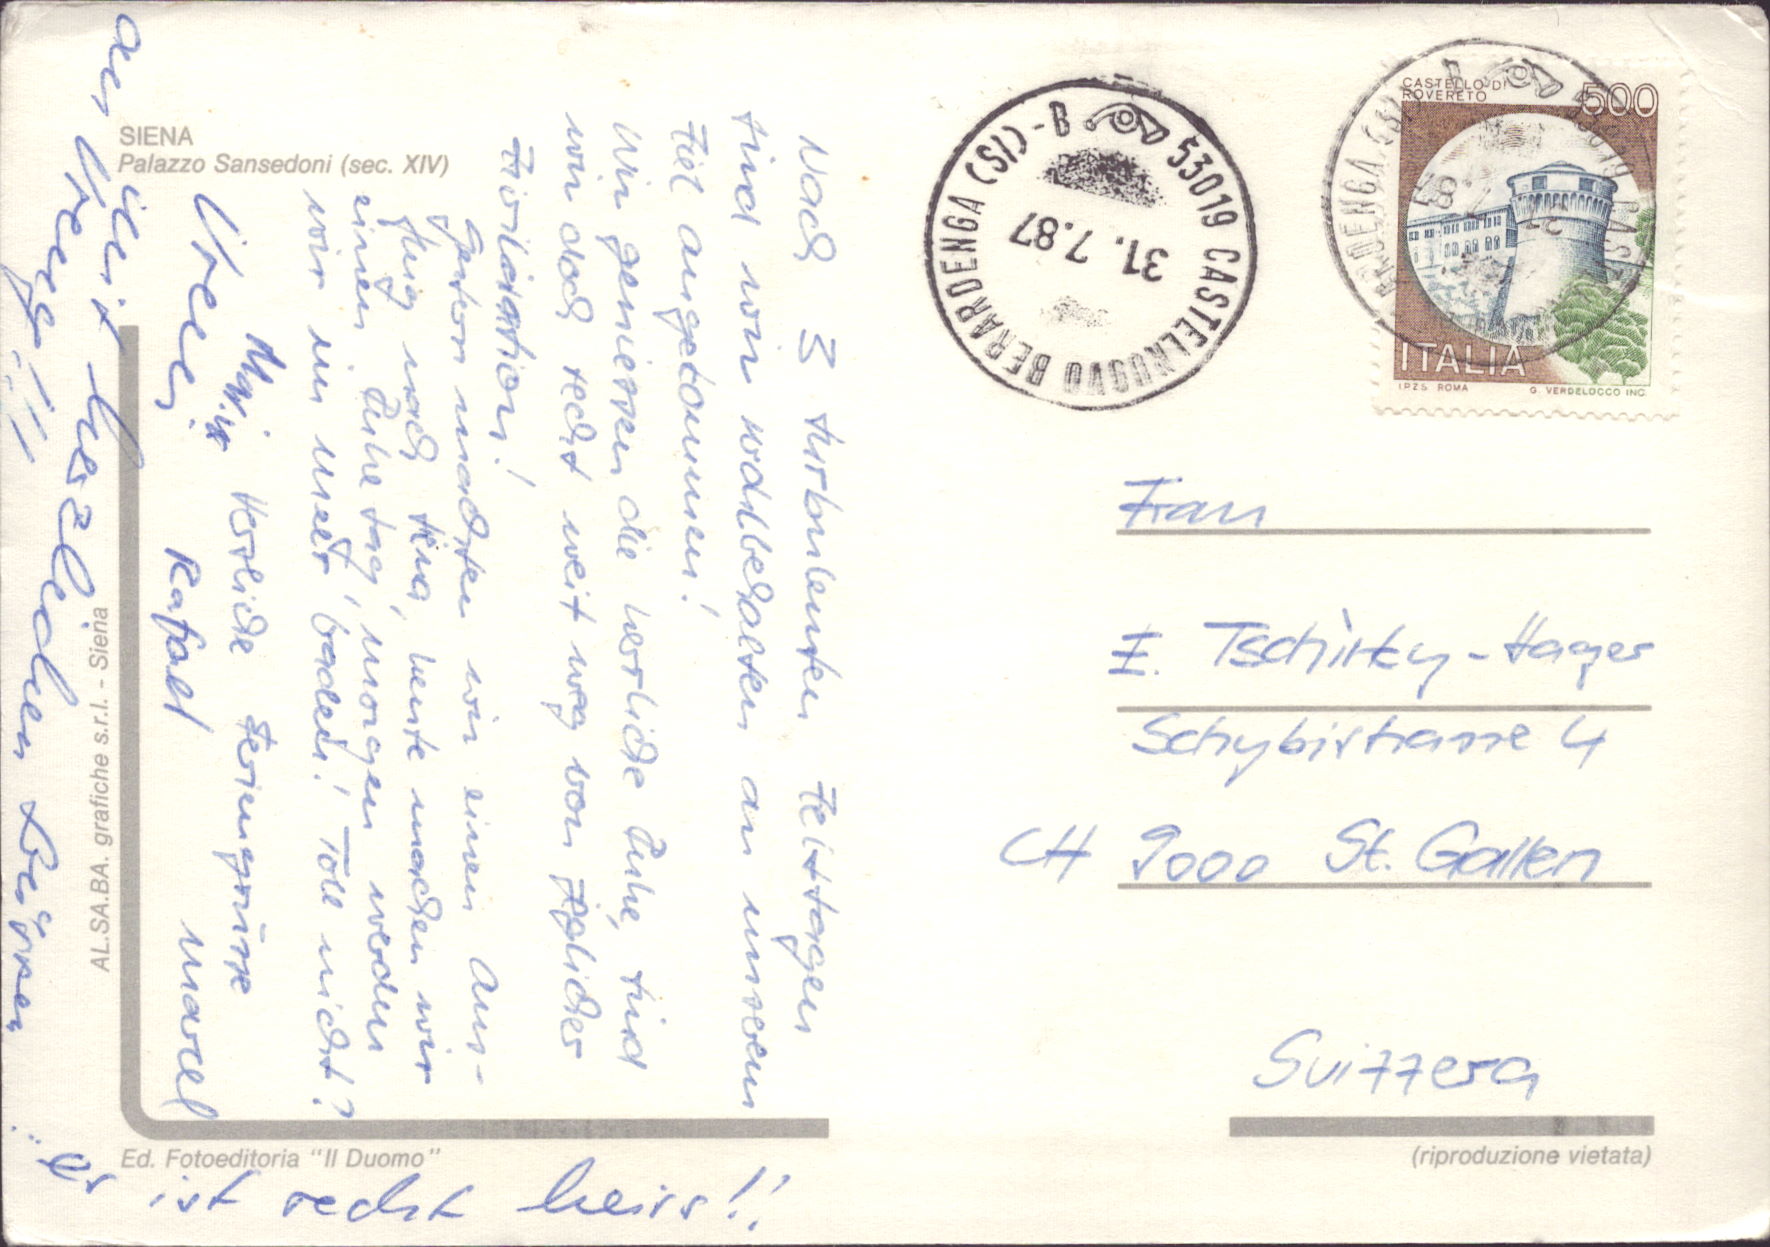 SIENA
Palazzo Sansedoni (sec. XIV)
Nach 3 turbulenten Zelttagen
sind wir wohlbehalten an unserem
Ziel angekommen!
Wir geniessen die herrliche Ruhe, sind
wir doch recht weit weg von jeglicher
Zivilisation!
Gestern machten wir einen Aus-
flug nach Siena, heute machen wir
einen Ruhetag, morgen werden
wir im Meer baden! Toll nicht?
Herzliche Feriengrüsse
Vreni
Rafael
Marcel
der Vreni herzlichen Grüssen
es ist recht heiss!!
AL.SA.BA. grafiche s.r.l. - Siena
Ed. Fotoeditoria "Il Duomo"
53019 CASTELNUOVO BERARDENGA (SI) - B
31.7.87
CASTELLO DI
ROVERETO
500
ITALIA
I.P.Z.S. ROMA
G. VERDELOCCO INC.
Frau
E. Tschirky-Hager
Schybistrasse 4
CH 9000 St. Gallen
Svizzera
(riproduzione vietata)